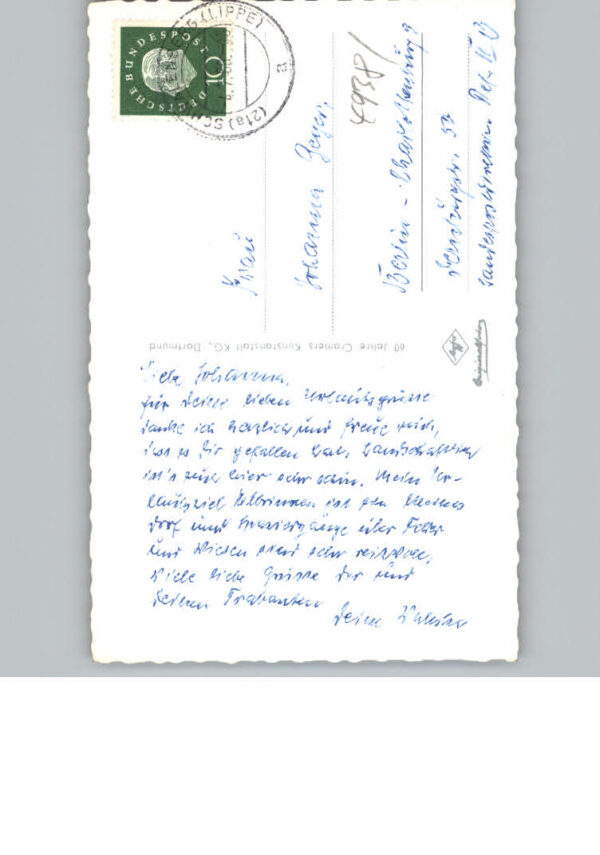 Liebe Johanna,
für Deine lieben Urlaubsgrüsse
danke ich herzlich und freue mich,
dass es Dir gefallen hat. Landschaftlich
ist's auch hier sehr schön. Mein Ur-
laubsziel ist ein kleines
Dorf und Spaziergänge über Felder
und Wiesen sind sehr reizvoll.
Viele liebe Grüsse Dir und
Deinen Trabanten
Deine
60 Jahre Cramers Kunstanstalt KG., Dortmund
Frau
Johanna
Berlin - Charlottenburg
57
Landespostdirektion
4938/
DEUTSCHE BUNDESPOST
10
(21a) (LIPPE)
a
Agfa